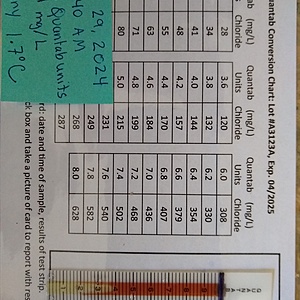 uantab Conversion Chart: Lot #A3123A, Exp. 04/2025
(mg/L) Quantab (mg/L) Quantab (mg/L)
Chloride Units Chloride Units Chloride
28 3.6 120 6.0 308
34 3.8 132 6.2 330
4.0 144 6.4 354
4.2 157 6.6 379
55 4.4 170 6.8 407
63 4.6 184 7.0 436
71 4.8 199 7.2 468
80 5.0 215 7.4 502
231 7.6 540
249 7.8 582
268 8.0 628
287
29, 2024
40 AM
Quantab units
mg/L
1.7°C
ard: date and time of sample, results of test strip.
ck box and take a picture of card to report with res
QUANTAB